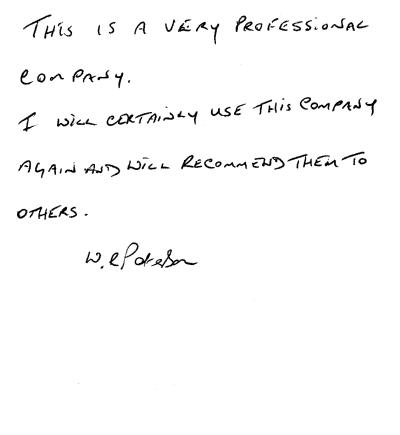 THIS IS A VERY PROFESSIONAL
COMPANY.
I WILL CERTAINLY USE THIS COMPANY
AGAIN AND WILL RECOMMEND THEM TO
OTHERS.
W.R Paterson